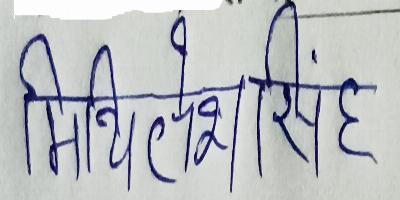 मिथिलेश सिंह